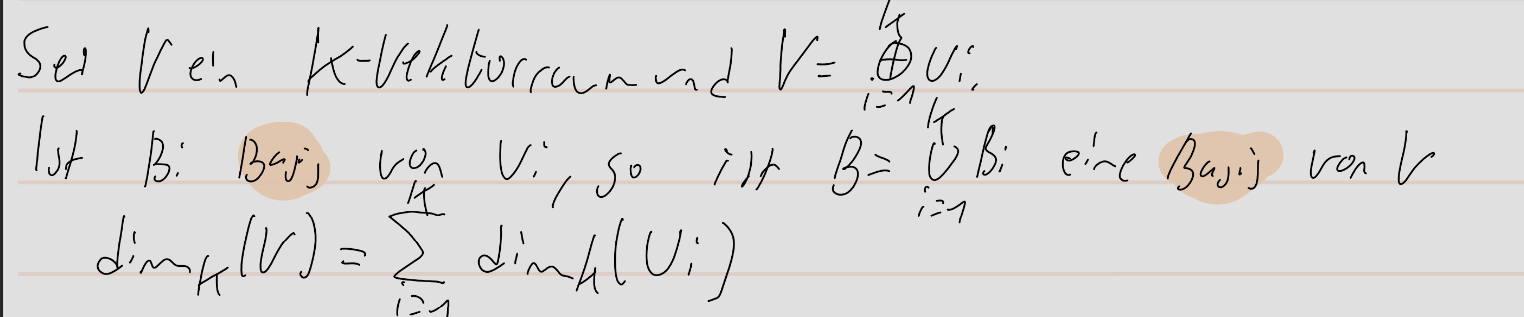 Sei V ein K-Vektorraum und V = ⊕_{i=1}^{k} U_i.
Ist B_i Basis von U_i, so ist B = ∪_{i=1}^{k} B_i eine Basis von V
dim_K(V) = Σ_{i=1}^{k} dim_K(U_i)